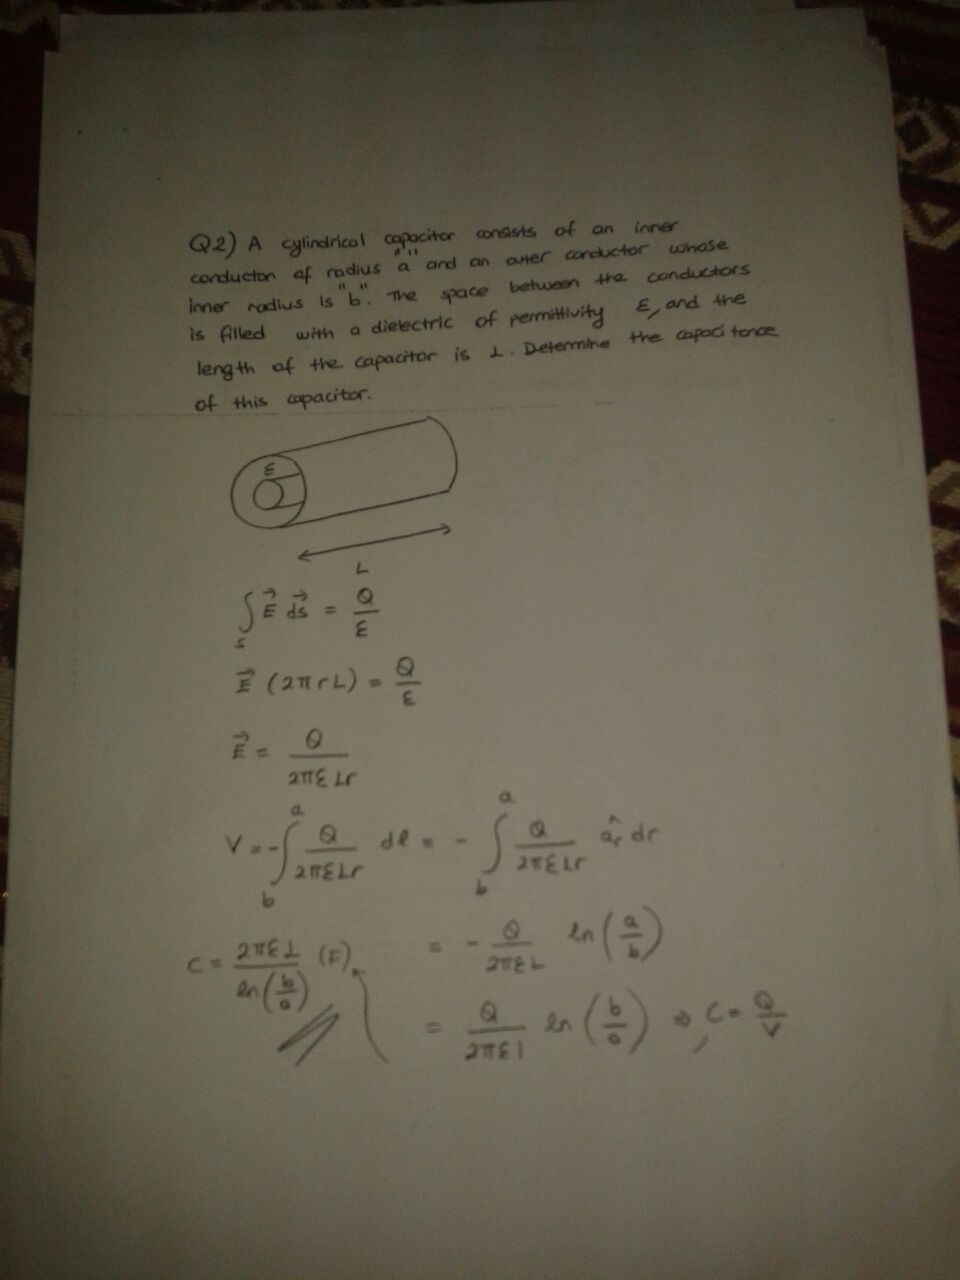 Q2) A cylindrical capacitor consists of an inner
conductor of radius "a" and an outer conductor whose
inner radius is "b". The space between the conductors
is filled with a dielectric of permittivity ε, and the
length of the capacitor is L. Determine the capacitance
of this capacitor.
ε
L
∫s E⃗ ds⃗ = Q/ε
E⃗ (2πrL) = Q/ε
E⃗ = Q/(2πεLr)
V = -∫_b^a Q/(2πεLr) dl = -∫_b^a Q/(2πεLr) â_r dr
= -Q/(2πεL) ln(a/b)
= Q/(2πεl) ln(b/a) ⇒, C = Q/V
C = 2πεL/ln(b/a) (F)